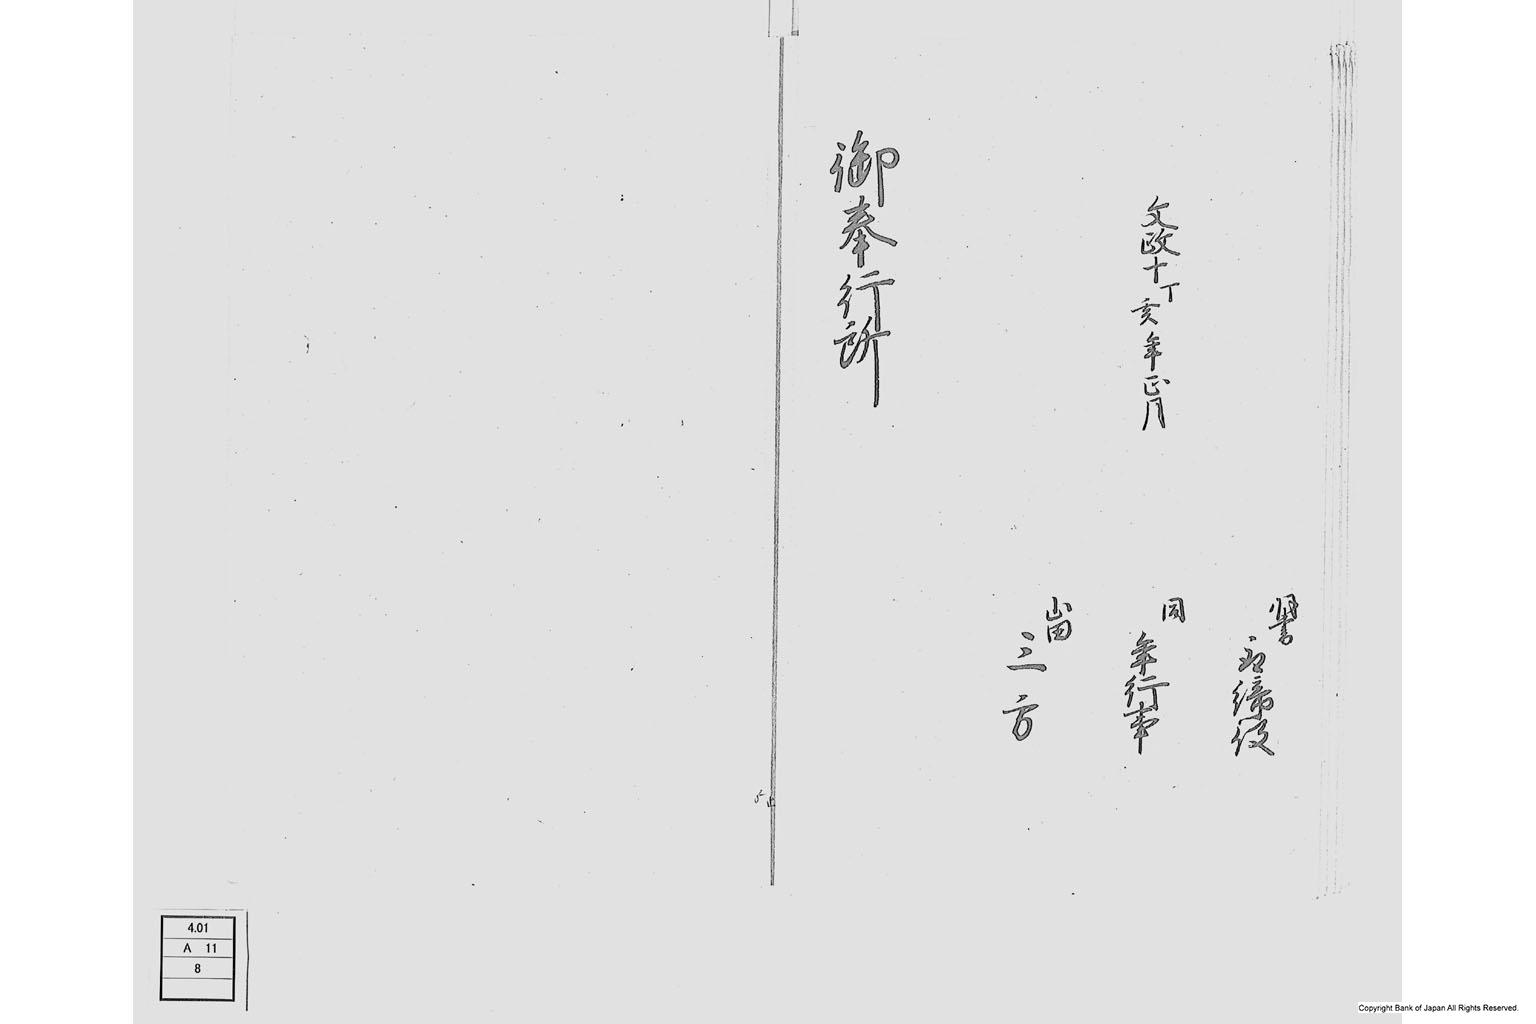 文政十丁亥年正月
羽書
取締役
同
年行事
山田
三方
御奉行所
4.01
A 11
8
Copyright Bank of Japan All Rights Reserved.